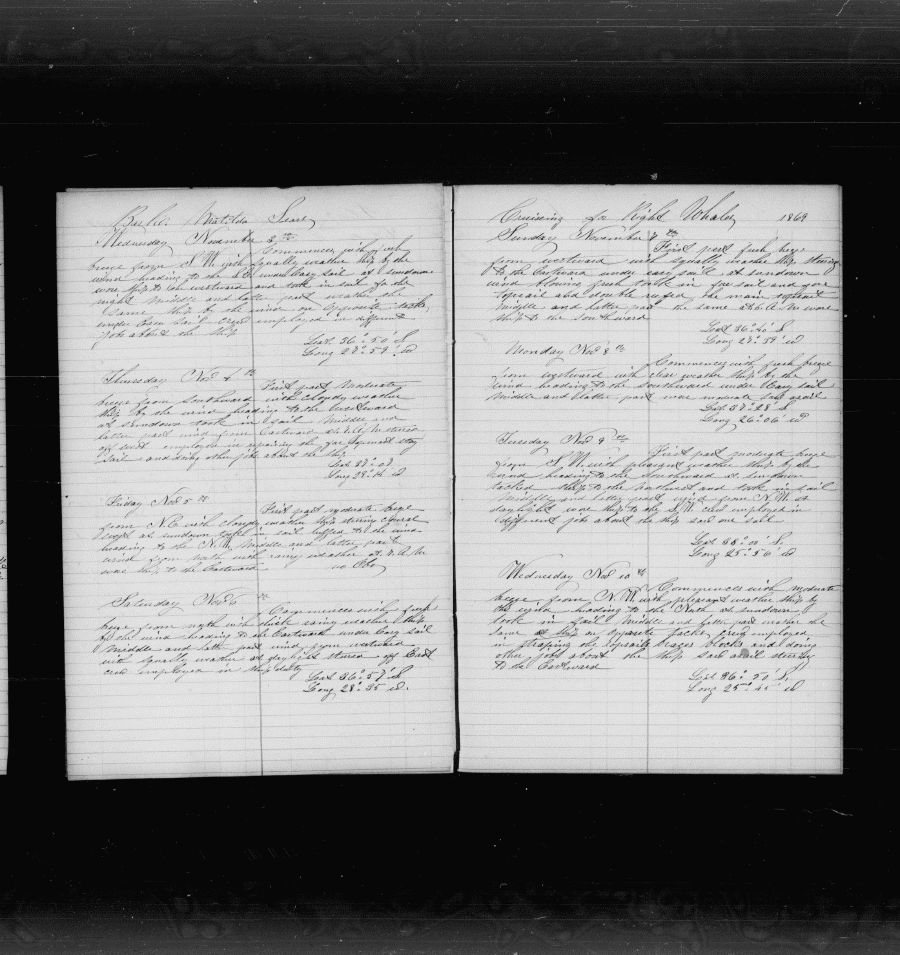 Bark Matilda Sears
Wednesday November 3th
Commences with fresh
breeze from S W. with squally weather ship by the
wind heading to the S.E. under easy sail at sundown
wore ship to the westward and took in sail for the
night Middle and latter part weather the
same ship by the wind on opposite tacks,
under easy sail crew employed in different
jobs about the ship
Lat 36° 50' S
Long 27° 59' W
Thursday Nov 4 th
First part moderate
breeze from southward with cloudy weather
ship by the wind heading to the westward
at sundown took in sail Middle and
latter part wind from Eastward at A.M. stered
off west employed in repairing the fore topmast stay
sail and doing other jobs about the ship
Lat 37° 03'
Long 28° 14' W
Friday Nov 5 th
First part moderate breeze
from N.E with cloudy weather ship stering
West at sundown took in sail luffed to the wind
heading to the N.W. Middle and latter part
wind from North with rainy weather at A.M.
wore ship to the Eastward no Obs
Saturday Nov 6 th
Commences with fresh
breze from north with thick rainy weather ship
by the wind heading to the Eastward under Easy sail
Middle and latter part wind from westward
with squally weather at daylight stered off East
crew employed in ships duty
Lat 36° 57' S
Long 28° 35' W.
Cruising for Right Whales 1869
Sunday November 7 th
First part fresh breze
from westward with squally weather ship stering
to the Eastward under easy sail at sundown
wind blowing fresh took in fore sail and fore
topsail and double reefed the main topsail
Middle and latter part the same at 6 A.M. wore
ship to the southward
Lat 36° 40' S
Long 27° 39' W
Monday Nov 8 th
Commences with fresh breeze
from westward with clear weather ship by the
wind heading to the southward under Easy sail
Middle and latter part more moderate saw a sail
Lat 37° 28' S
Long 26° 06' W
Tuesday Nov 9 th
First part moderate breze
from S W. with pleasant weather ship by the
wind heading to the southward at sundown
tacked ship to the northwest and took in sail
Middle and latter part wind from N.W. at
daylight wore ship to the S.W crew employed in
different jobs about the ship saw one sail
Lat 38° 01' S.
Long 25° 50' W
Wednesday Nov 10 th
Commences with moderate
breze from N. W. with pleasant weather ship by
the wind heading to the North at sundown
took in sail Middle and latter part weather the
same ship on opposite tacks crew employed
in straping the topsails braces blocks and doing
other jobs about the ship saw a sail stering
to the Eastward
Lat 36° 50' S,
Long 25° 45' W